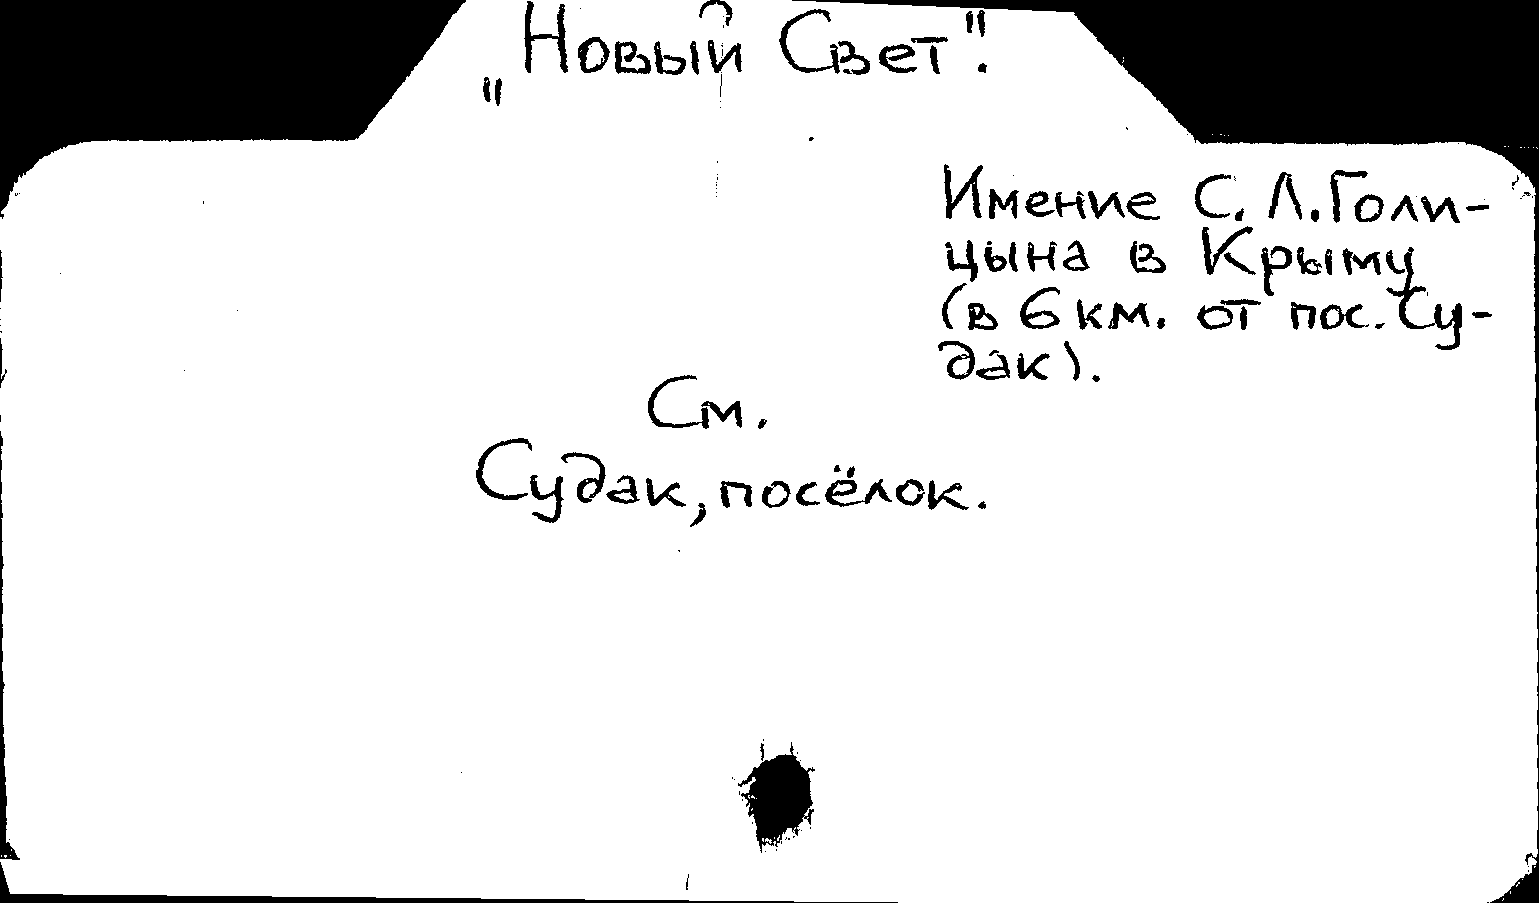 „Новый Свет".
Имение С. Л. Голи-
цына в Крыму
(в 6 км. от пос. Су-
дак).
См.
Судак, посёлок.